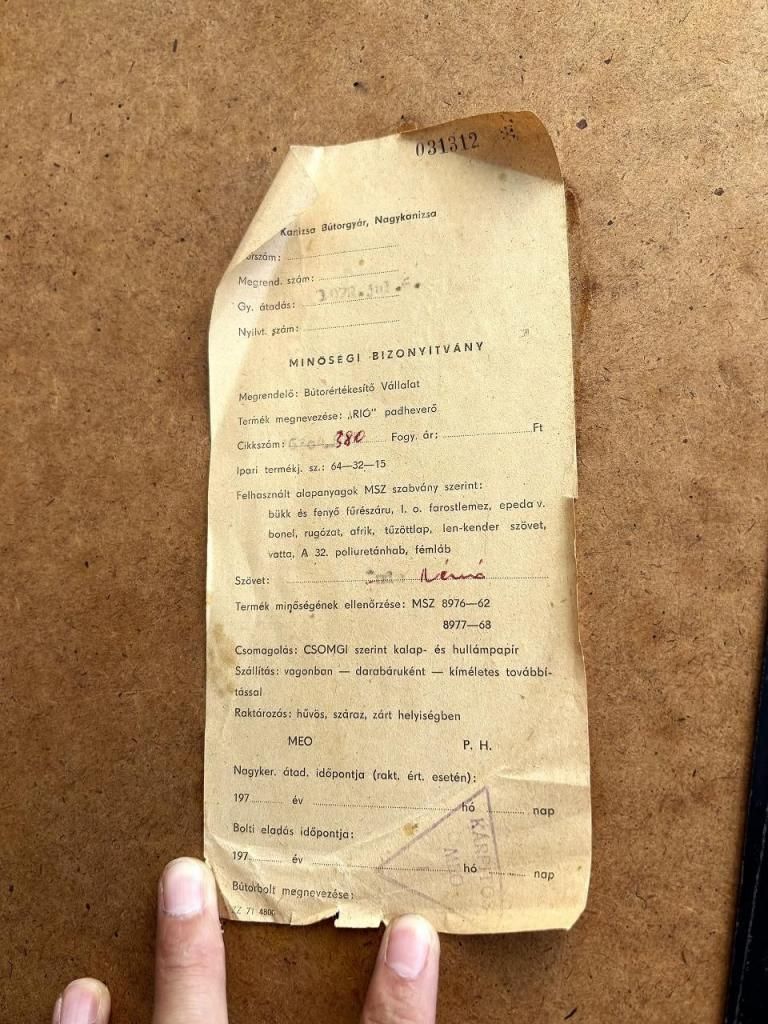 031312
Kanizsa Bútorgyár, Nagykanizsa
Megrend. szám:
Gy. átadás:
Nyilvt. szám:
MINŐSÉGI BIZONYÍTVÁNY
Megrendelő: Bútorértékesítő Vállalat
Termék megnevezése: „RIÓ" padheverő
Cikkszám: 380 Fogy. ár: Ft
Ipari termékj. sz.: 64—32—15
Felhasznált alapanyagok MSZ szabvány szerint:
bükk és fenyő fűrészáru, l. o. farostlemez, epeda v.
bonel, rugózat, afrik, tűzöttlap, len-kender szövet,
vatta, A 32. poliuretánhab, fémláb
Szövet:
Termék minőségének ellenőrzése: MSZ 8976—62
8977—68
Csomagolás: CSOMGI szerint kalap- és hullámpapír
Szállítás: vagonban — darabáruként — kíméletes továbbí-
tással
Raktározás: hűvös, száraz, zárt helyiségben
MEO P. H.
Nagyker. átad. időpontja (rakt. ért. esetén):
197 év hó nap
Bolti eladás időpontja:
197 év hó nap
KÁRPITOS
MEO
Bútorbolt megnevezése:
ZZ 71 4800